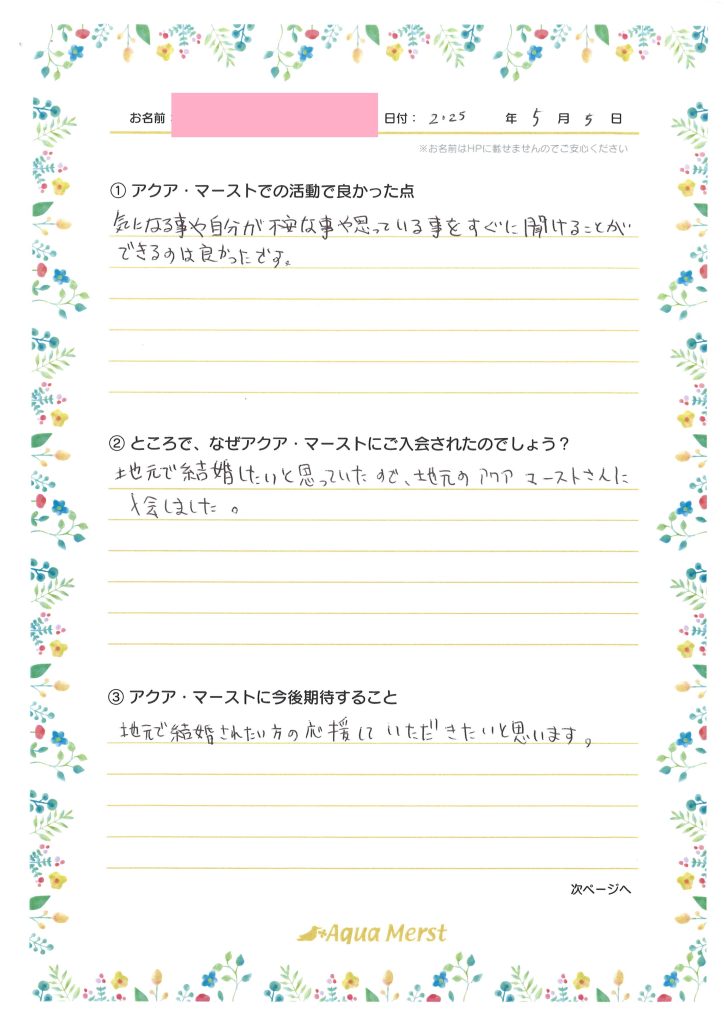 お名前： 日付： 2025 年 5 月 5 日
※お名前はHPに載せませんのでご安心ください
① アクア・マーストでの活動で良かった点
気になる事や自分が不安な事や思っている事をすぐに聞けることが
できるのは良かったです。
② ところで、なぜアクア・マーストにご入会されたのでしょう？
地元で結婚したいと思っていたので、地元のアクアマーストさんに
入会しました。
③ アクア・マーストに今後期待すること
地元で結婚されたい方の応援していただきたいと思います。
次ページへ
Aqua Merst